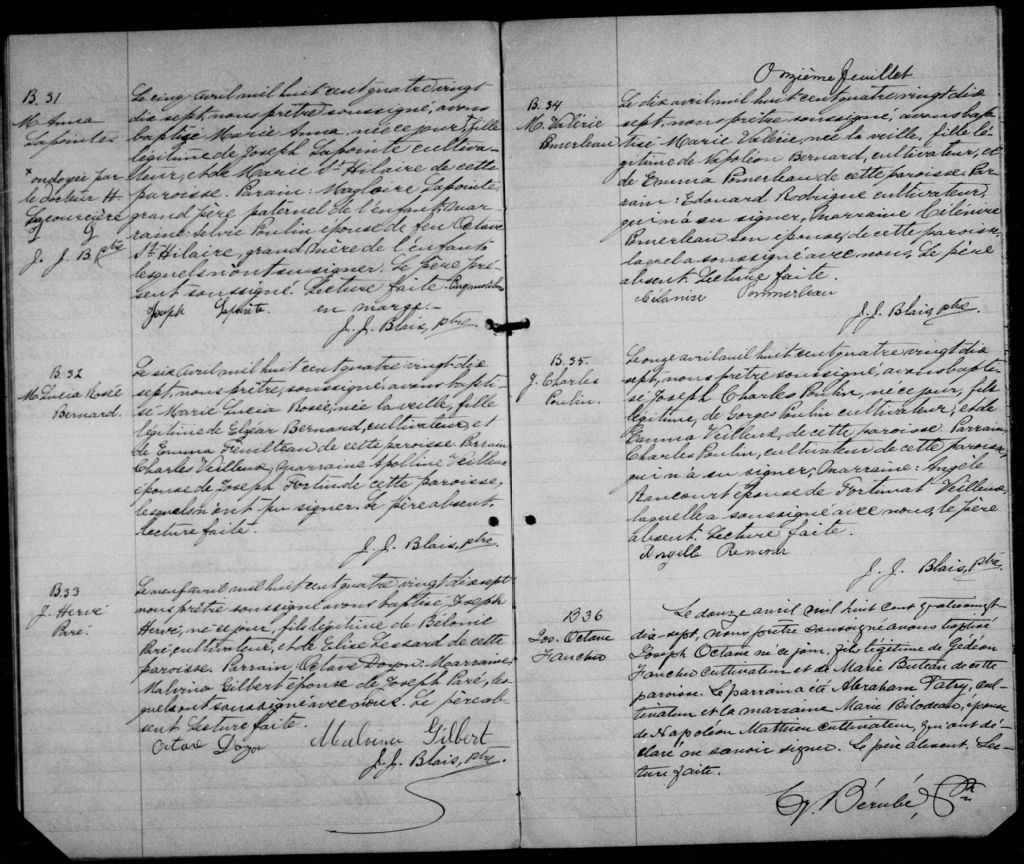 B. 31
M. Anna
Lapointe
* ondoyée par
le docteur H
Lacourcière
J. J. B. ptre
Le cinq avril mil huit cent quatre vingt
dix sept, nous prêtre soussigné, avons
baptisé Marie Anna, née ce jour, * fille
légitime de Joseph Lapointe cultiva-
teur, et de Marie St Hilaire de cette
paroisse. Parain: Magloire Lapointe
grand père paternel de l'enfant; mar-
raine: Selvie Poulin épouse de feu Octave
St Hilaire, grand'mère de l'enfant
lesquels n'ont su signer. Le père pré-
sent soussigné. Lecture faite.
en marge.
Joseph Lapointe
J. J. Blais, ptre.
B. 32
M. Lucia Rosée
Bernard.
Le six avril mil huit cent quatre vingt dix
sept, nous prêtre, soussigné, avons bapti-
sé Marie Lucia Rosée, née la veille, fille
légitime de Elzéar Bernard, cultivateur, et
de Emma Feuilteau de cette paroisse. Parrain
Charles Veilleux, marraine Apolline Veilleux
épouse de Joseph Fortin de cette paroisse,
lesquels n'ont pu signer. Le père absent.
Lecture faite.
J. J. Blais, ptre.
B. 33
J. Hervé
Paré.
Le neuf avril mil huit cent quatre vingt dix sept
nous prêtre soussigné avons baptisé Joseph
Hervé, né ce jour, fils légitime de Bélonie
Paré cultivateur, et de Elise Lessard de cette
paroisse. Parrain, Octave Doyon. Marraine,
Malvina Gilbert épouse de Joseph Paré, les-
quels ont soussigné avec nous. Le père ab-
sent Lecture faite.
Octave Doyon Malvina Gilbert
J. J. Blais, ptre.
Onzième feuillet
B. 34
M. Valérie
Pomerleau
Le dix avril mil huit cent quatre vingt dix
sept, nous prêtre soussigné, avons bap-
tisé Marie Valérie, née la veille, fille lé-
gitime de Napoléon Bernard, cultivateur, et
de Emma Pomerleau de cette paroisse. Par-
rain: Edouard Rodrigue cultivateur,
qui n'a su signer, marraine Célénire
Pomerleau son épouse, de cette paroisse,
laquel a soussigné avec nous, le père
absent. Lecture faite.
Pommerleau
J. J. Blais, ptre.
B. 35.
J. Charles
Poulin.
Le onze avril mil huit cent quatre vingt dix
sept, nous prêtre soussigné, avons bapti-
sé Joseph Charles Poulin, né ce jour, fils
légitime, de Gorges Poulin cultivateur, et de
Emma Veilleux, de cette paroisse. Parrain,
Charles Poulin, cultivateur de cette paroisse,
qui n'a su signer; marraine: Angèle
Rancourt épouse de Fortunat Veilleux,
laquelle a soussigné avec nous, le père
absent. Lecture faite.
J. J. Blais, ptre.
B 36
Jos. Octave
Faucher
Le douze avril mil huit cent quatrevingt
dix-sept, nous prêtre soussigné avons baptisé
Joseph Octave né ce jour, fils légitime de Gédéon
Faucher cultivateur et de Marie Buteau de cette
paroisse. Le parrain a été Abraham Patry, cul-
tivateur et la marraine Marie Bilodeau, épouse
de Napoléon Mathieu cultivateur, qui ont dé-
claré ne savoir signer. Le père absent. Lec-
ture faite.
Bérubé, Ptre